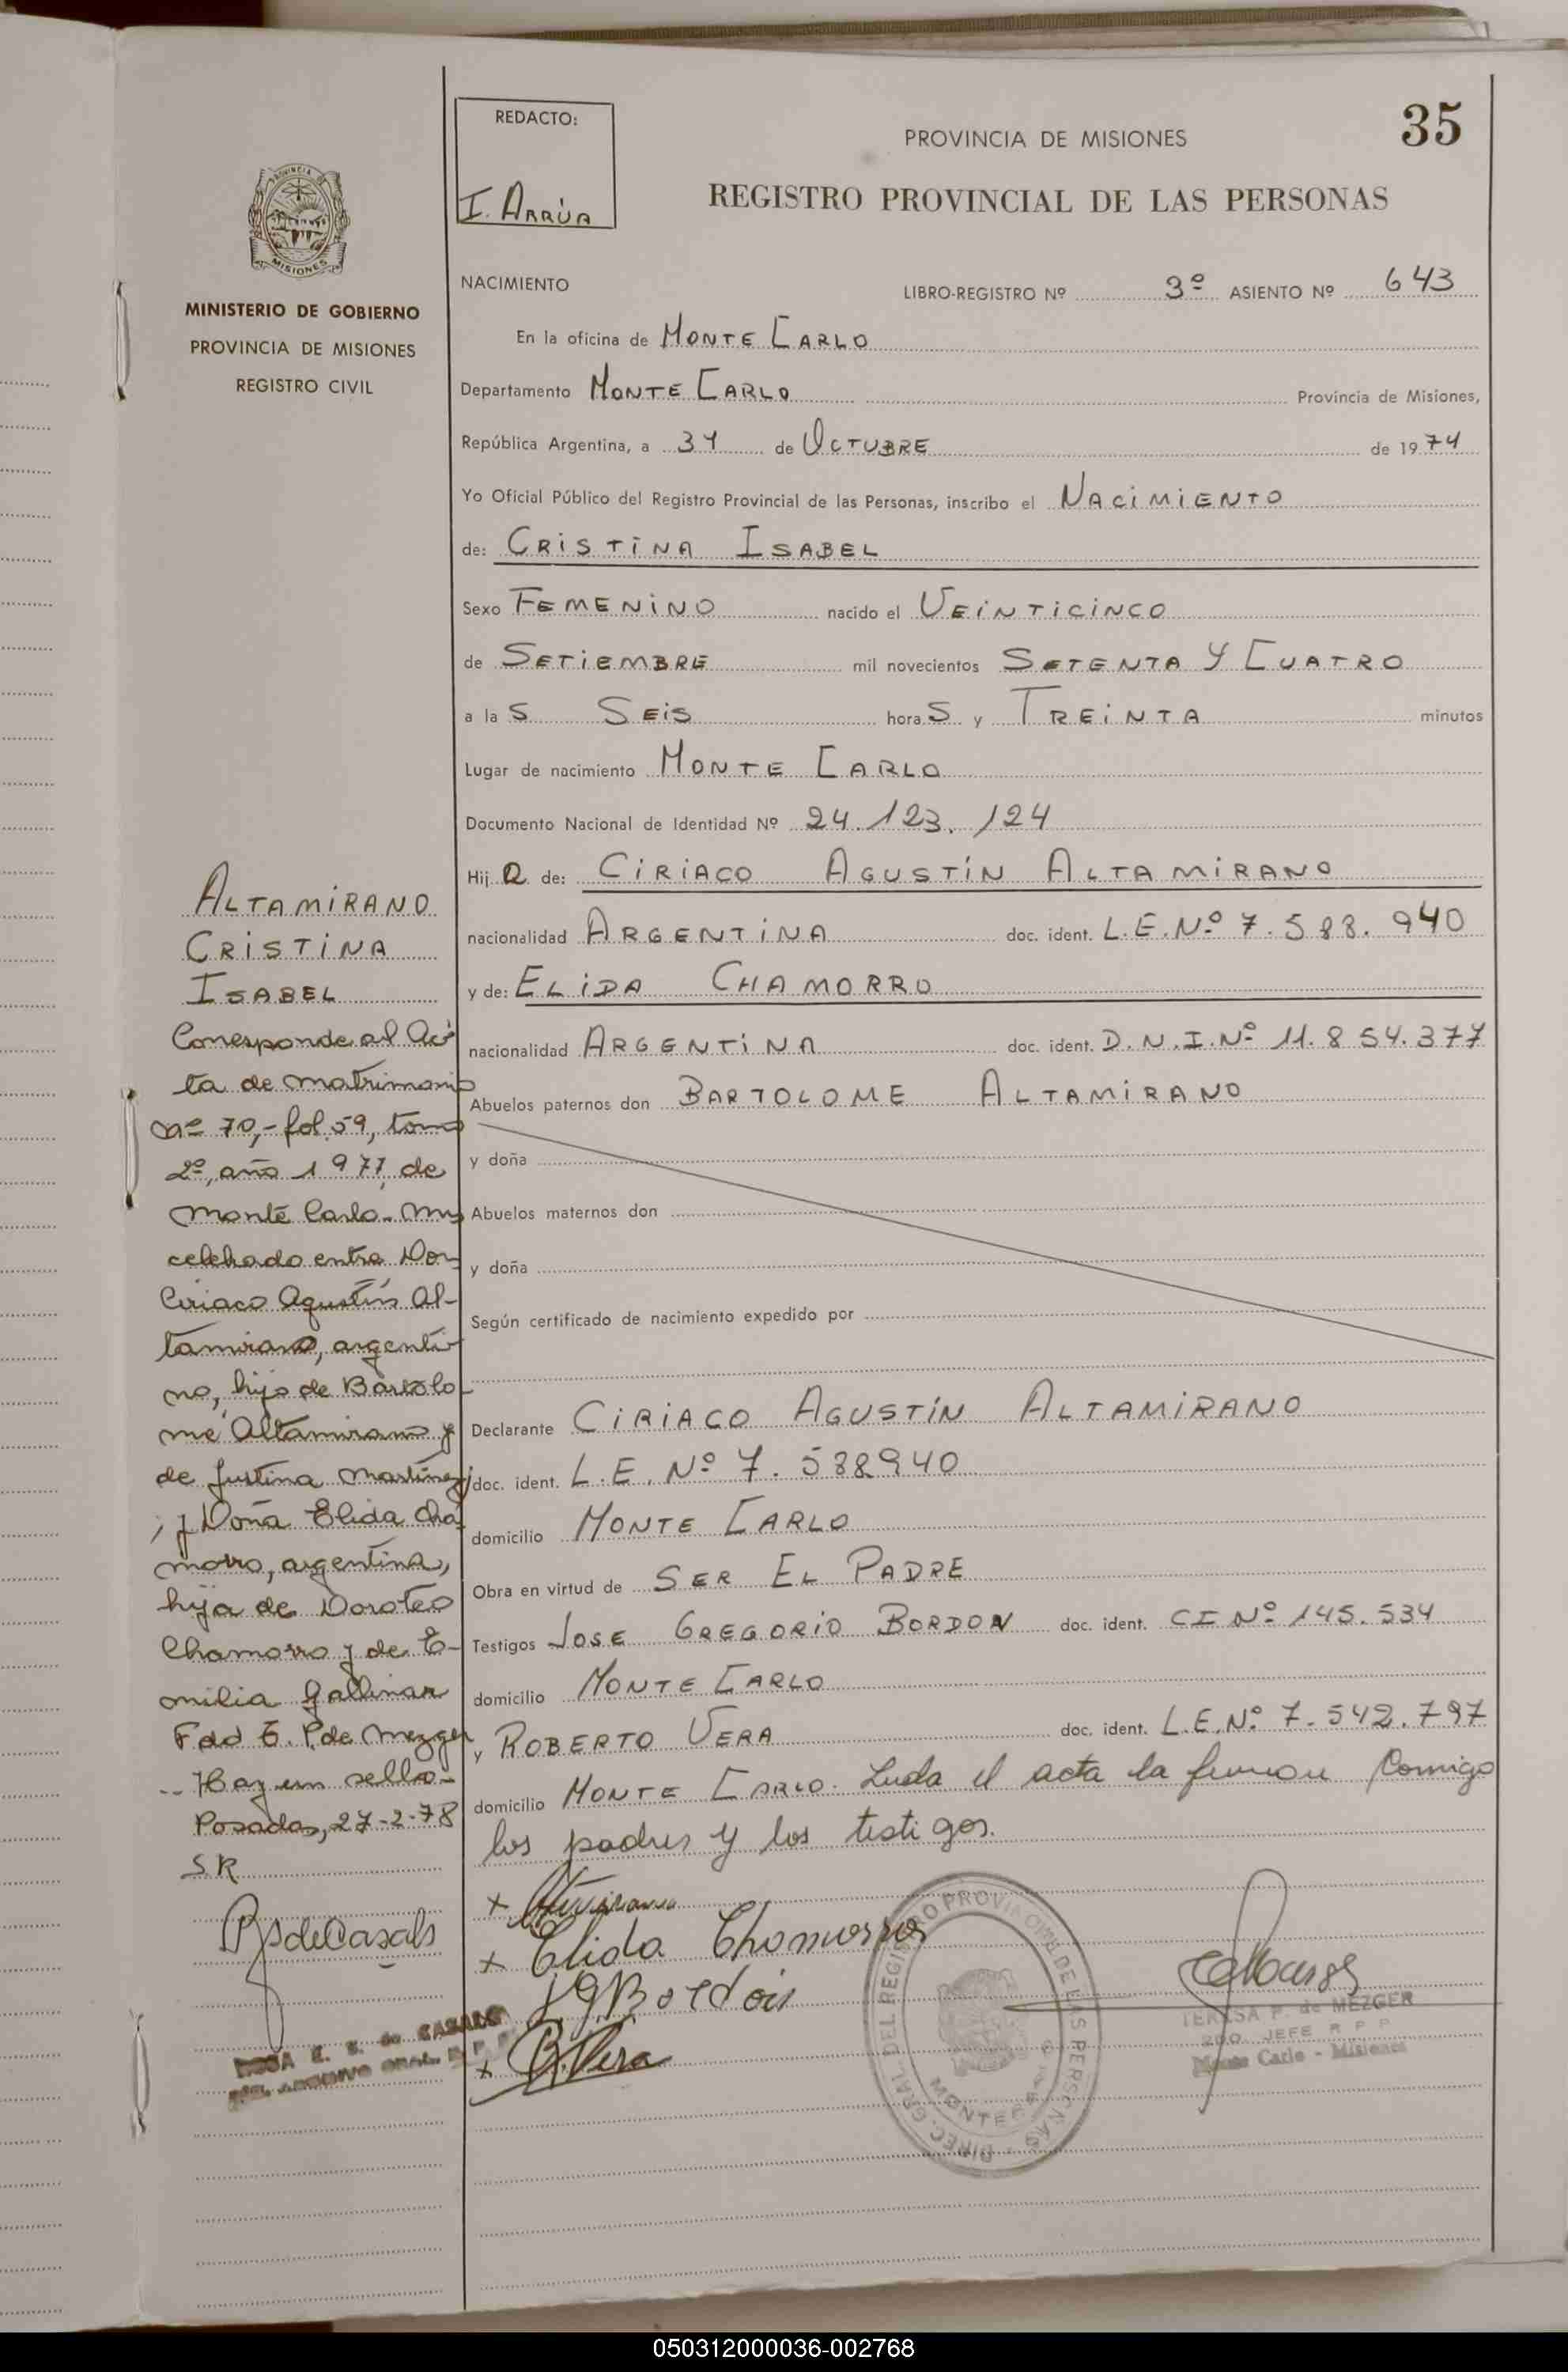 35
REDACTO:
I. ARRÚA
PROVINCIA DE MISIONES
REGISTRO PROVINCIAL DE LAS PERSONAS
PROVINCIA DE
MISIONES
MINISTERIO DE GOBIERNO
PROVINCIA DE MISIONES
REGISTRO CIVIL
NACIMIENTO
LIBRO-REGISTRO Nº 3º ASIENTO Nº 643
En la oficina de MONTE CARLO
Departamento MONTE CARLO Provincia de Misiones,
República Argentina, a 31 de OCTUBRE de 1974
Yo Oficial Público del Registro Provincial de las Personas, inscribo el NACIMIENTO
de: CRISTINA ISABEL
Sexo FEMENINO nacido el VEINTICINCO
de SETIEMBRE mil novecientos SETENTA Y CUATRO
a las SEIS horas y TREINTA minutos
Lugar de nacimiento MONTE CARLO
Documento Nacional de Identidad Nº 24.123.124
Hija de: CIRIACO AGUSTÍN ALTAMIRANO
nacionalidad ARGENTINA doc. ident. L.E.Nº 7.588.940
y de: ELIDA CHAMORRO
nacionalidad ARGENTINA doc. ident. D.N.I.Nº 11.854.377
Abuelos paternos don BARTOLOME ALTAMIRANO
y doña
Abuelos maternos don
y doña
Según certificado de nacimiento expedido por
Declarante CIRIACO AGUSTÍN ALTAMIRANO
doc. ident. L.E. Nº 7.588940
domicilio MONTE CARLO
Obra en virtud de SER EL PADRE
Testigos JOSE GREGORIO BORDON doc. ident. CI Nº 145.534
domicilio MONTE CARLO
y ROBERTO VERA doc. ident. L.E.Nº 7.542.797
domicilio MONTE CARLO. Leida el acta la firman Comigo
los padres y los testigos.
ALTAMIRANO
CRISTINA
ISABEL
Corresponde al Ac
ta de matrimonio
nº 70,- fol. 59, tomo
2º, año 1977, de
Monte Carlo-Mnes
celebrado entre Don
Ciriaco Agustín Al-
tamirano, argenti-
no, hijo de Bartolo
mé Altamirano y
de Justina Martínez
; y Doña Elida Cha
morro, argentina,
hija de Doroteo
Chamorro y de E-
milia Gallinar
Fdo T. P. de Mezger
-- Hay un sello-
Posadas, 27-2-78
SR
RSdeCasals
E. S. de CASALS
ARCHIVO GRAL. R P
+ Altamirano
+ Elida Chamorro
JGBordón
+ R.Vera
DIREC. GRAL. DEL REGISTRO PROVINCIAL DE LAS PERSONAS
MONTECARLO
TERESA P. de MEZGER
2DO. JEFE R P P
Monte Carlo - Misiones
050312000036-002768